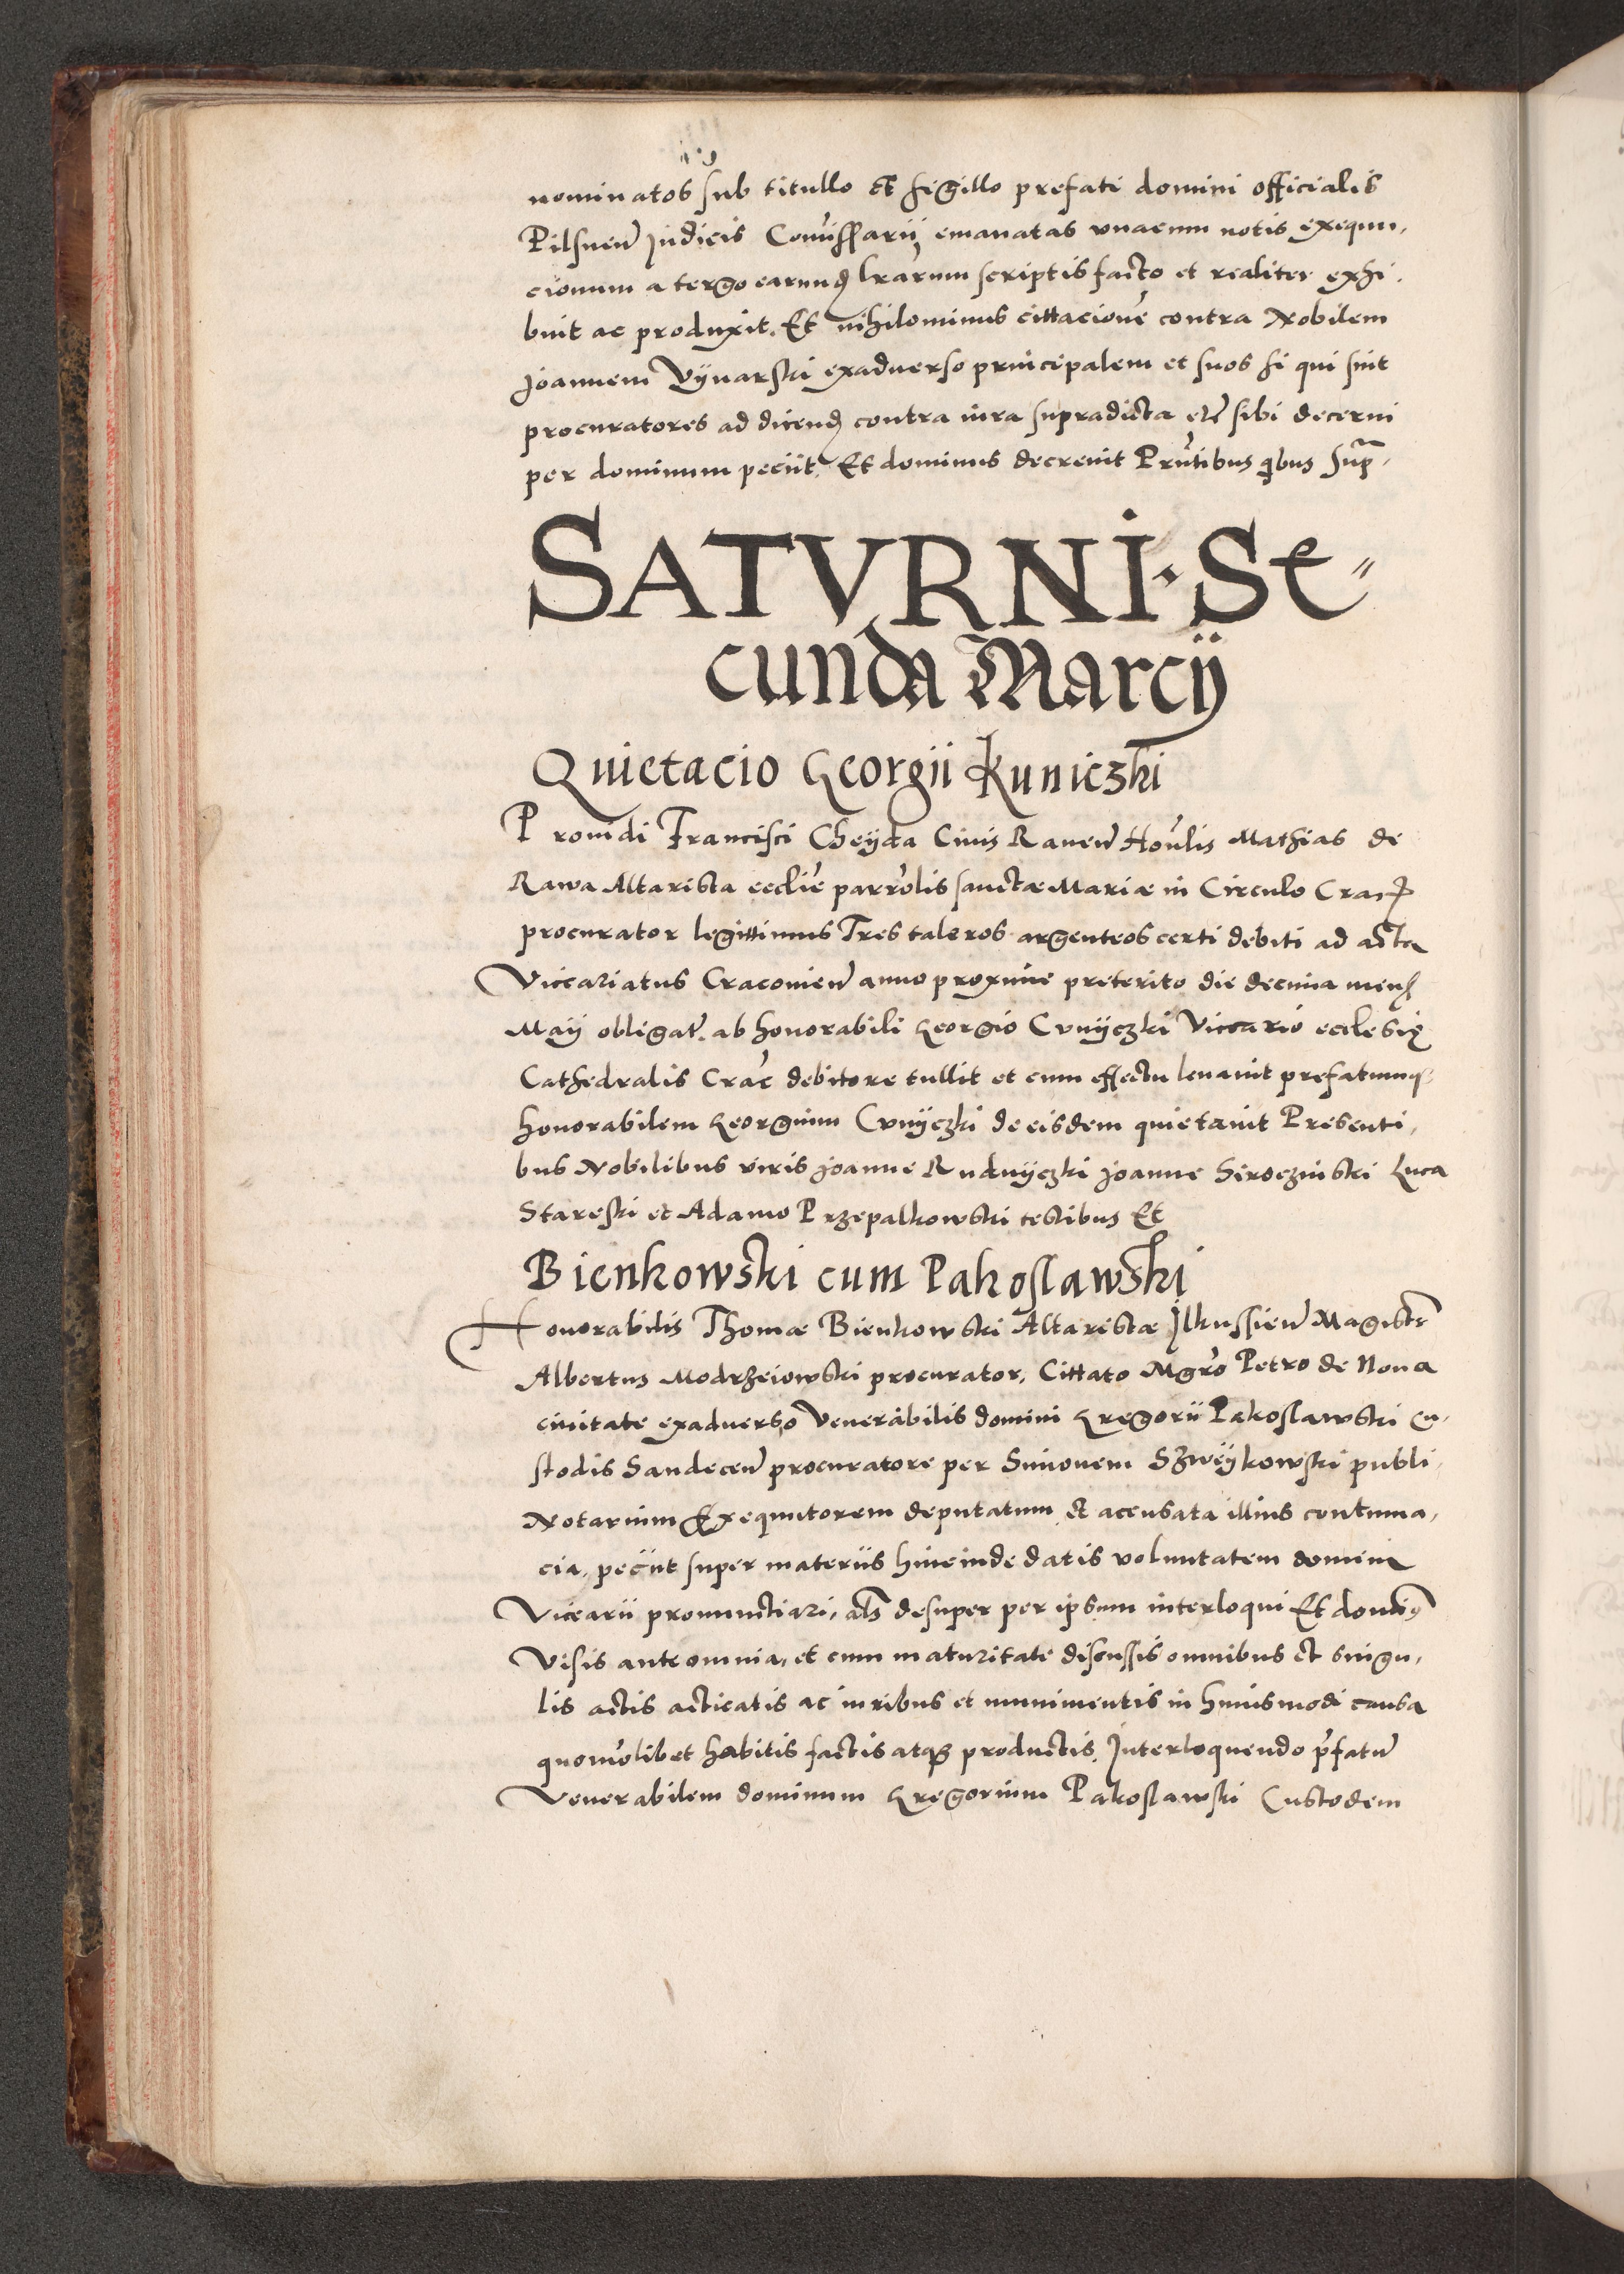 nominatos sub titullo et sigillo prefati domini officialis
Pilsnen̄ Judicis Comissarij emanatas vnacum notis exequu,
cionum a tergo earund lrarum scriptis facto et realiter exhi,
buit ac produxit. Et nihilominus cittacionē contra Nobilem
Joannem Vynarski exaduerso principalem et suos si qui sint
procuratores ad dicend contra iura supradicta etc̄ sibi decerni
per dominum peciit. Et dominus decreuit Prn̄tibus qbus supr̄.
SATVRNI · Se=
cunda Marcij
Quietacio Georgii Kuniczki
Prouidi Francisci Cheyda Ciuis Rauen̄ Hon̄lis Mathias de
Rawa Altarista ecclīe parrolis sanctæ Mariæ in Circulo Crac
procurator legittimus Tres taleros argenteos certi debiti ad acta
Viccariatus Cracouien̄ anno proxime preterito die decima mens
Maÿ obligat. ab honorabili Georgio Cunÿczki Viccario ecclesię
Cathedralis Crac̄ debitore tullit et cum effectu leuauit prefatumq
honorabilem Georgium Cunÿczki de eisdem quietauit Presenti,
bus Nobilibus viris Joanne Rudnÿczki Joanne Siroczinski Luca
Stareski et Adamo Przepalkowski testibus Et
Bienkowski cum Pakoslawski
Honorabilis Thomæ Bienkowski Altaristæ Jlkussien̄ Magistr
Albertus Modrzeiowski procurator, Cittato Mgrō Petro de Noua
ciuitate exaduerso Venerabilis domini Gregorii Pakoslawski Cu,
stodis Sandecen̄ procuratore per Simonem Szweÿkowski publi,
Notarium Exequutorem deputatum et accusata illius contuma,
cia, peciit super materiis hincinde datis voluntatem domini
Vicearii pronunctiari, als̄ desuper per ipsum interloqui Et domin9
Visis ante omnia, et cum maturitate discussis omnibus et singu,
lis actis acticatis ac iuribus et munimentis in huiusmodi causa
quomolibet habitis factis atq productis. Interloquendo pfatum̄
Venerabilem dominum Gregorium Pakoslawski Custodem